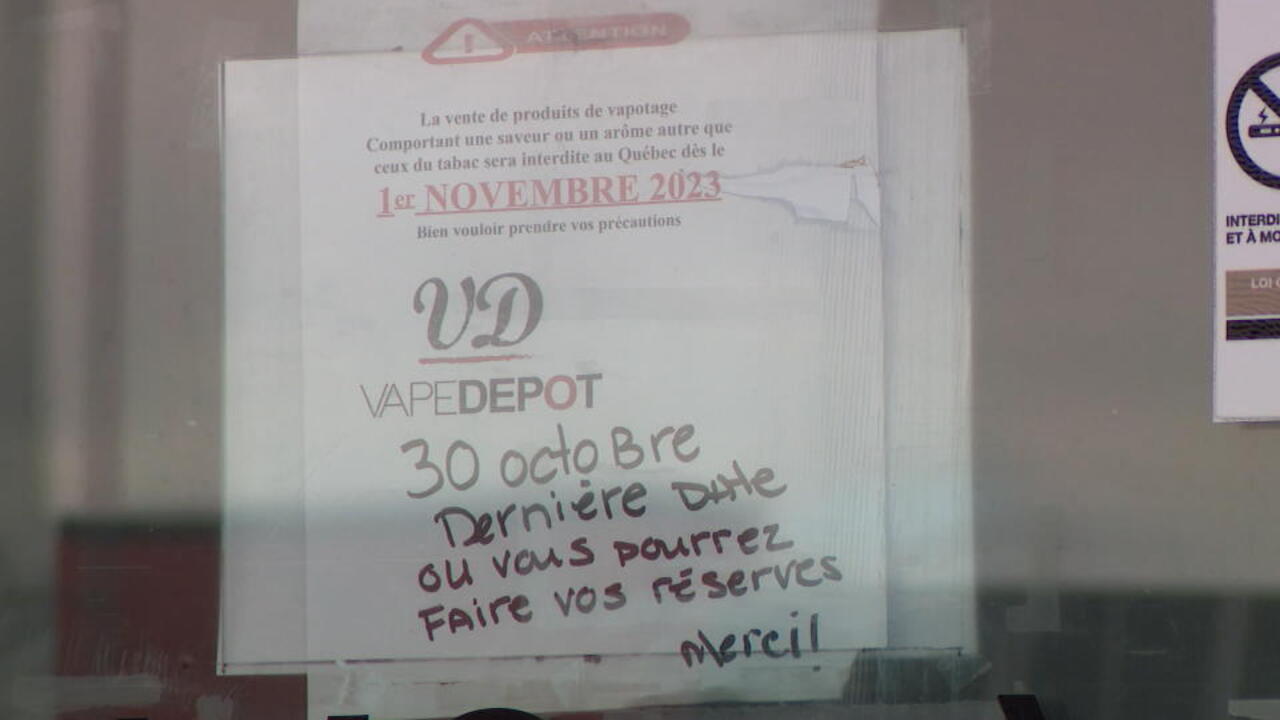 ATTENTION
La vente de produits de vapotage
Comportant une saveur ou un arôme autre que
ceux du tabac sera interdite au Québec dès le
1er NOVEMBRE 2023
Bien vouloir prendre vos précautions
VD
VAPEDEPOT
30 octoBre
Dernière Date
ou vous pourrez
Faire vos réserves
Merci!
INTERDI
ET À MO
LOI